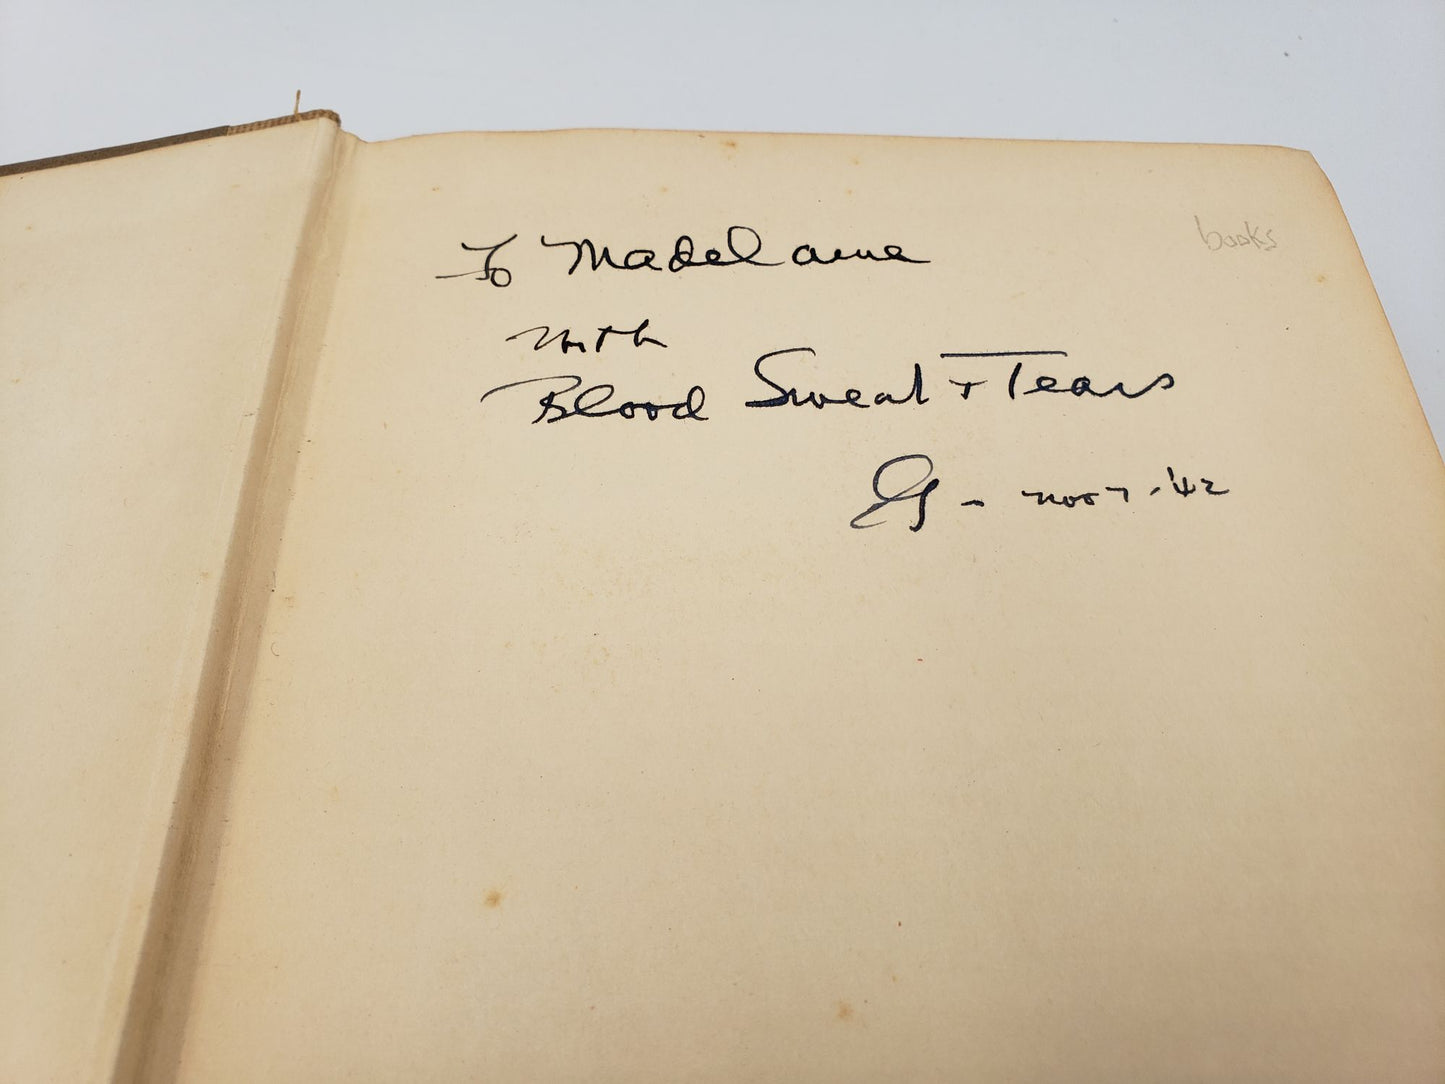 books
To Madelaine
with
Blood Sweat + Tears
EG - Nov 7 - '42